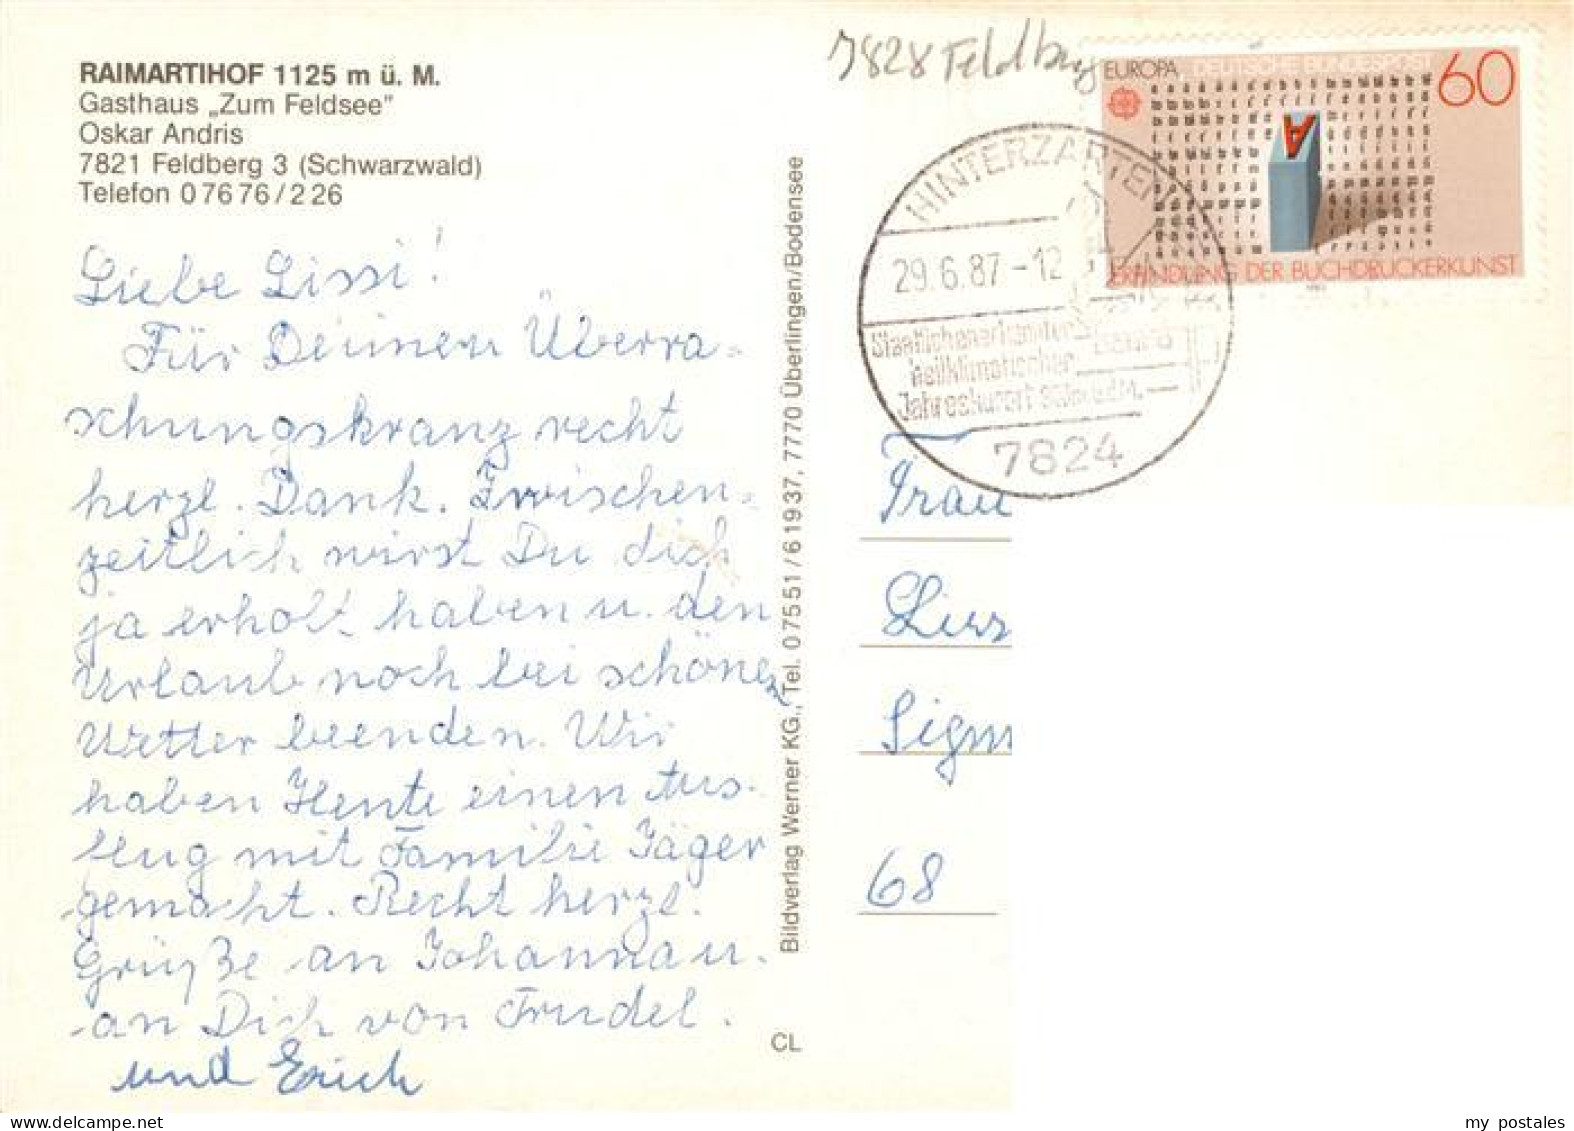 RAIMARTIHOF 1125 m ü. M.
Gasthaus „Zum Feldsee"
Oskar Andris
7821 Feldberg 3 (Schwarzwald)
Telefon 0 76 76 / 2 26
Liebe Lissi!
Für Deinen Überra-
schungskranz recht
herzl. Dank. Zwischen-
zeitlich wirst Du dich
ja erholt haben u. den
Urlaub noch bei schönen
Wetter beenden. Wir
haben Heute einen Aus-
flug mit Familie Jäger
gemacht. Recht herzl.
Grüße an Johanna u.
an Dich von Trudel.
und Erich
Bildverlag Werner KG., Tel. 0 75 51 / 6 19 37, 7770 Überlingen/Bodensee
CL
7828 Feldberg
EUROPA DEUTSCHE BUNDESPOST 60
A
ERFINDUNG DER BUCHDRUCKERKUNST
HINTERZARTEN
29.6.87-12
Staatlich anerkannter
heilklimatischer
Jahreskurort
7824
Frau
Sigm
68
my postales